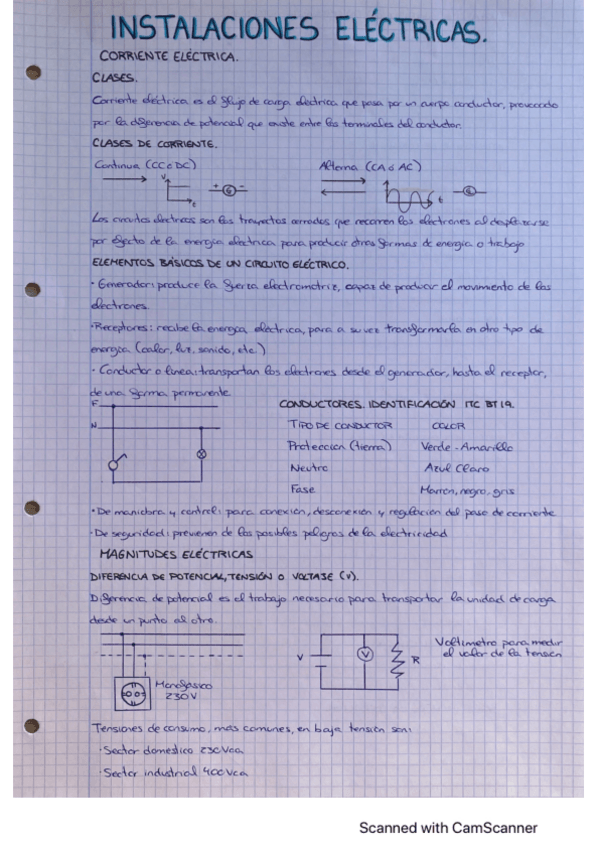 INSTALACIONES ELÉCTRICAS.
CORRIENTE ELÉCTRICA.
CLASES.
Corriente eléctrica es el flujo de carga eléctrica que pasa por un cuerpo conductor, provocado
por la diferencia de potencial que existe entre los terminales del conductor.
CLASES DE CORRIENTE.
Continua (CC o DC)
Alterna (CA ó AC)
V
t
+
G
-
t
G
Los circuitos eléctricos son los trayectos cerrados que recorren los electrones al desplazarse
por efecto de la energía eléctrica para producir otras formas de energía o trabajo
ELEMENTOS BÁSICOS DE UN CIRCUITO ELÉCTRICO.
· Generador: produce la fuerza electromotriz, capaz de producir el movimiento de los
electrones.
· Receptores: recibe la energía eléctrica, para a su vez transformarla en otro tipo de
energía (calor, luz, sonido, etc.)
· Conductor o línea: transportan los electrones desde el generador, hasta el receptor,
de una forma permanente.
F
N
CONDUCTORES. IDENTIFICACIÓN ITC BT 19.
TIPO DE CONDUCTOR COLOR
Protección (tierra) Verde - Amarillo
Neutro Azul Claro
Fase Marrón, negro, gris
· De maniobra y control: para conexión, desconexión y regulación del paso de corriente
· De seguridad: previenen de los posibles peligros de la electricidad
MAGNITUDES ELÉCTRICAS
DIFERENCIA DE POTENCIAL, TENSIÓN O VOLTAJE (V).
Diferencia de potencial es el trabajo necesario para transportar la unidad de carga
desde un punto al otro.
Monofásico
230V
V
V
R
Voltímetro para medir
el valor de la tensión
Tensiones de consumo, más comunes, en baja tensión son:
· Sector doméstico 230Vca
· Sector industrial 400Vca
Scanned with CamScanner